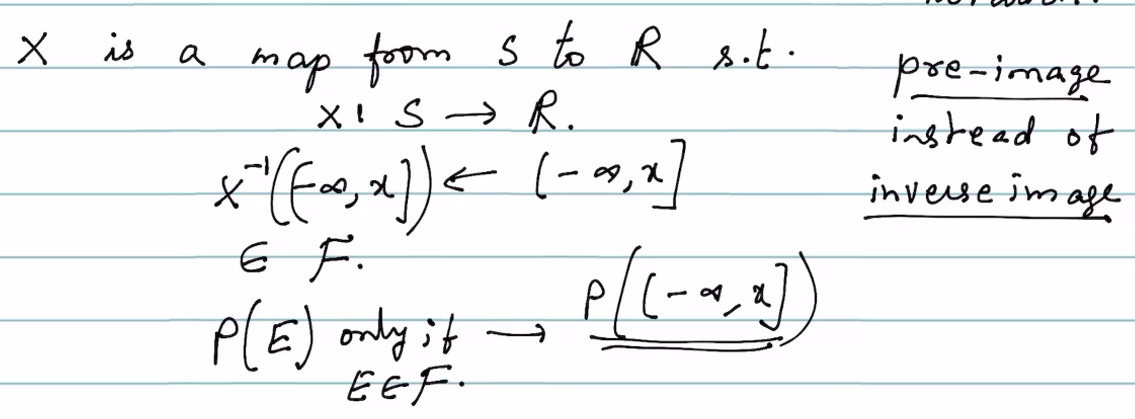 X is a map from S to R s.t.
X: S → R.
X⁻¹((-∞, x]) ← (-∞, x]
∈ F.
P(E) only if → P((-∞, x])
E ∈ F.
pre-image
instead of
inverse image